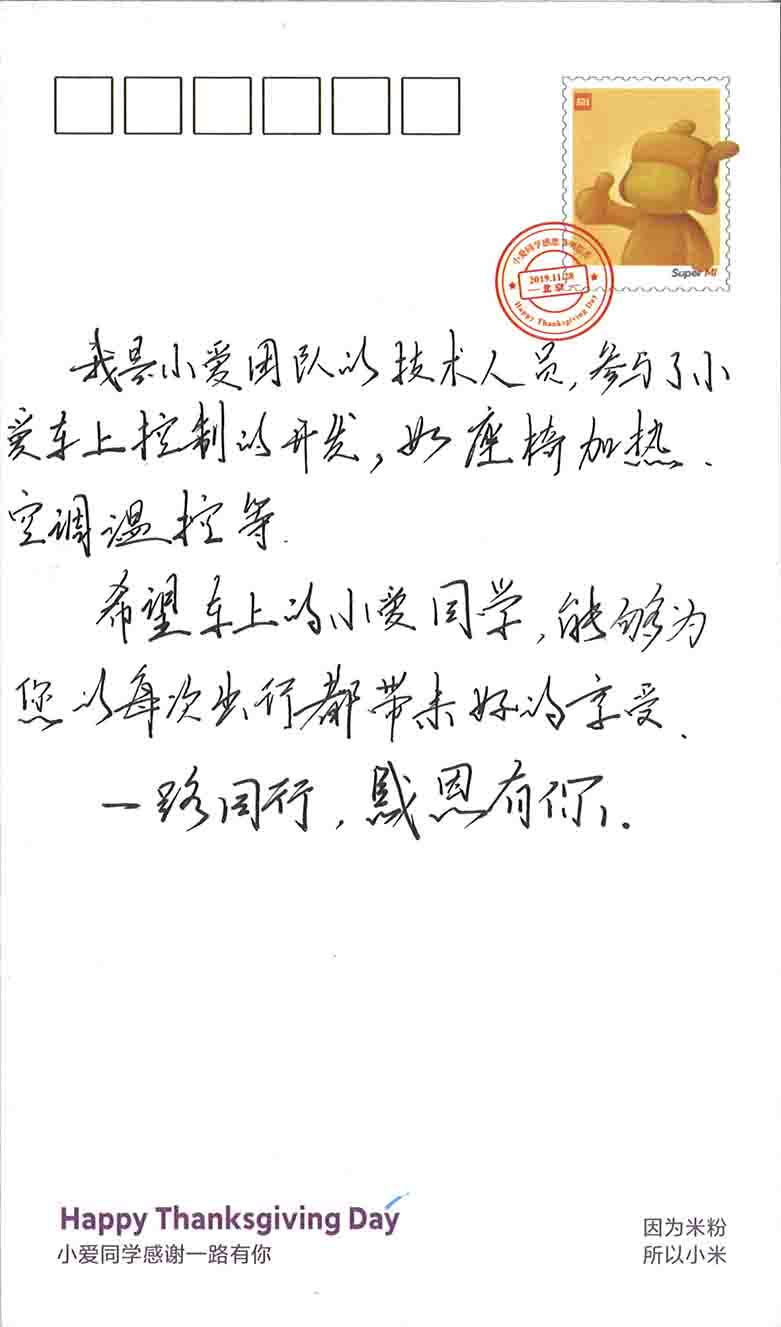 MI
Super MI
2019.11.28
北京
Happy Thanksgiving Day
我是小爱团队的技术人员,参与了小
爱车上控制的开发,如座椅加热、
空调温控等.
希望车上的小爱同学,能够为
您的每次出行都带来好的享受.
一路同行,感恩有你.
Happy Thanksgiving Day
小爱同学感谢一路有你
因为米粉
所以小米